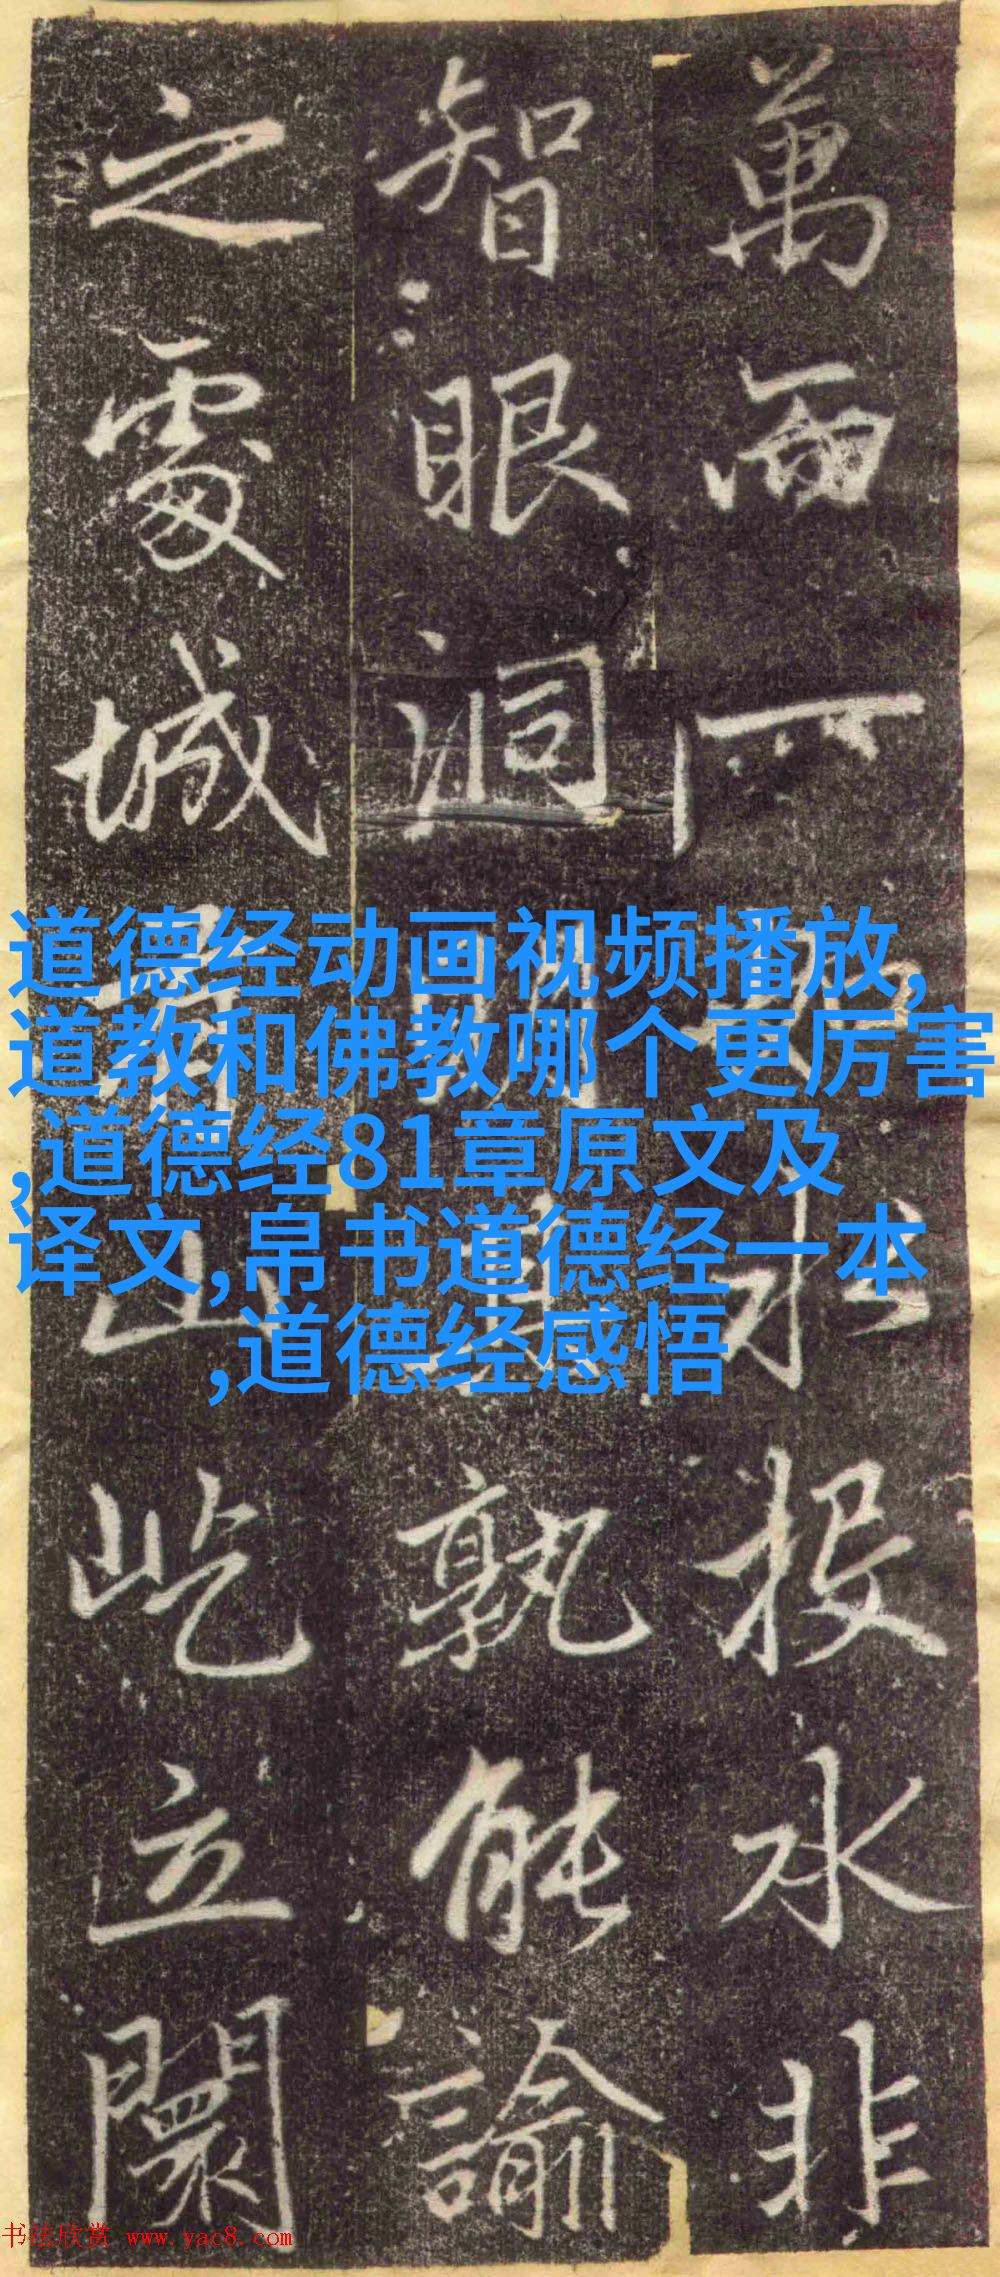 萬水投水非
智眼洞孰能諭
之城山屹立闤
道德经动画视频播放,
道教和佛教哪个更厉害
,道德经81章原文及
译文,帛书道德经一本
,道德经感悟
书法欣赏 www.yac8.com